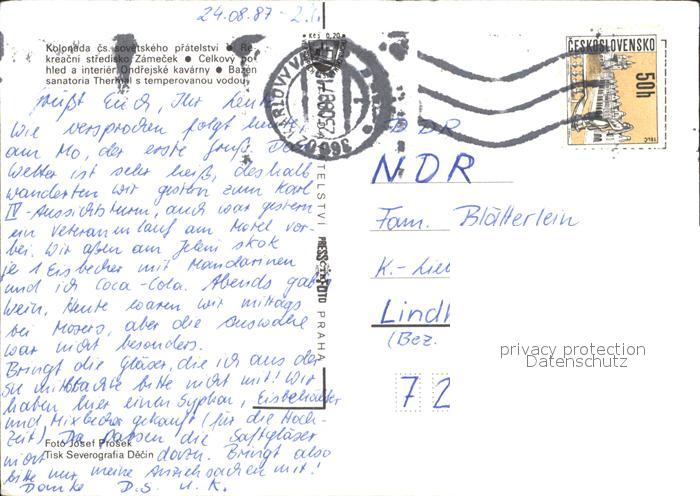 24.08.87
Kolonáda čs. sovětského přátelství ● Re
kreační středisko Zámeček ● Celkový po
hled a interiér Ondřejské kavárny ● Bazén
sanatoria Thermal s temperovanou vodou
Grüßt Euch, Ihr Leute
Wie versprochen folgt heute
am Mo, der erste Gruß. Das
Wetter ist sehr heiß, deshalb
wanderten wir gestern zum Karl
IV-Aussichtsturm, auch war gestern
ein Veteranenlauf am Hotel vor-
bei. Wir aßen am Jeleni skok
je 1 Eisbecher mit Mandarinen
und ich Coca-Cola. Abends gab's
Wein. Heute waren wir mittags
bei Mosers, aber die Auswahl
war nicht besonders.
Bringt die Gläser, die ich aus der
SU mitbrachte bitte nicht mit! Wir
haben hier einen Syphon, Eisbehälter
und Mixbecher gekauft (für die Hoch-
zeit) Da passen die Saftgläser
nicht dazu. Bringt also
bitte nur meine Anziehsachen mit!
Danke D.S. u. K.
Foto Josef Prošek
Tisk Severografia Děčín
TELSTVÍ
PRESSFOTO
PRAHA
Kčs 0,20
KARLOVY VARY
360 05
ČESKOSLOVENSKO
50h
TELČ
DDR
NDR
Fam. Blätterlein
K.-Lie
Lindh
(Bez.
7 2
privacy protection
Datenschutz